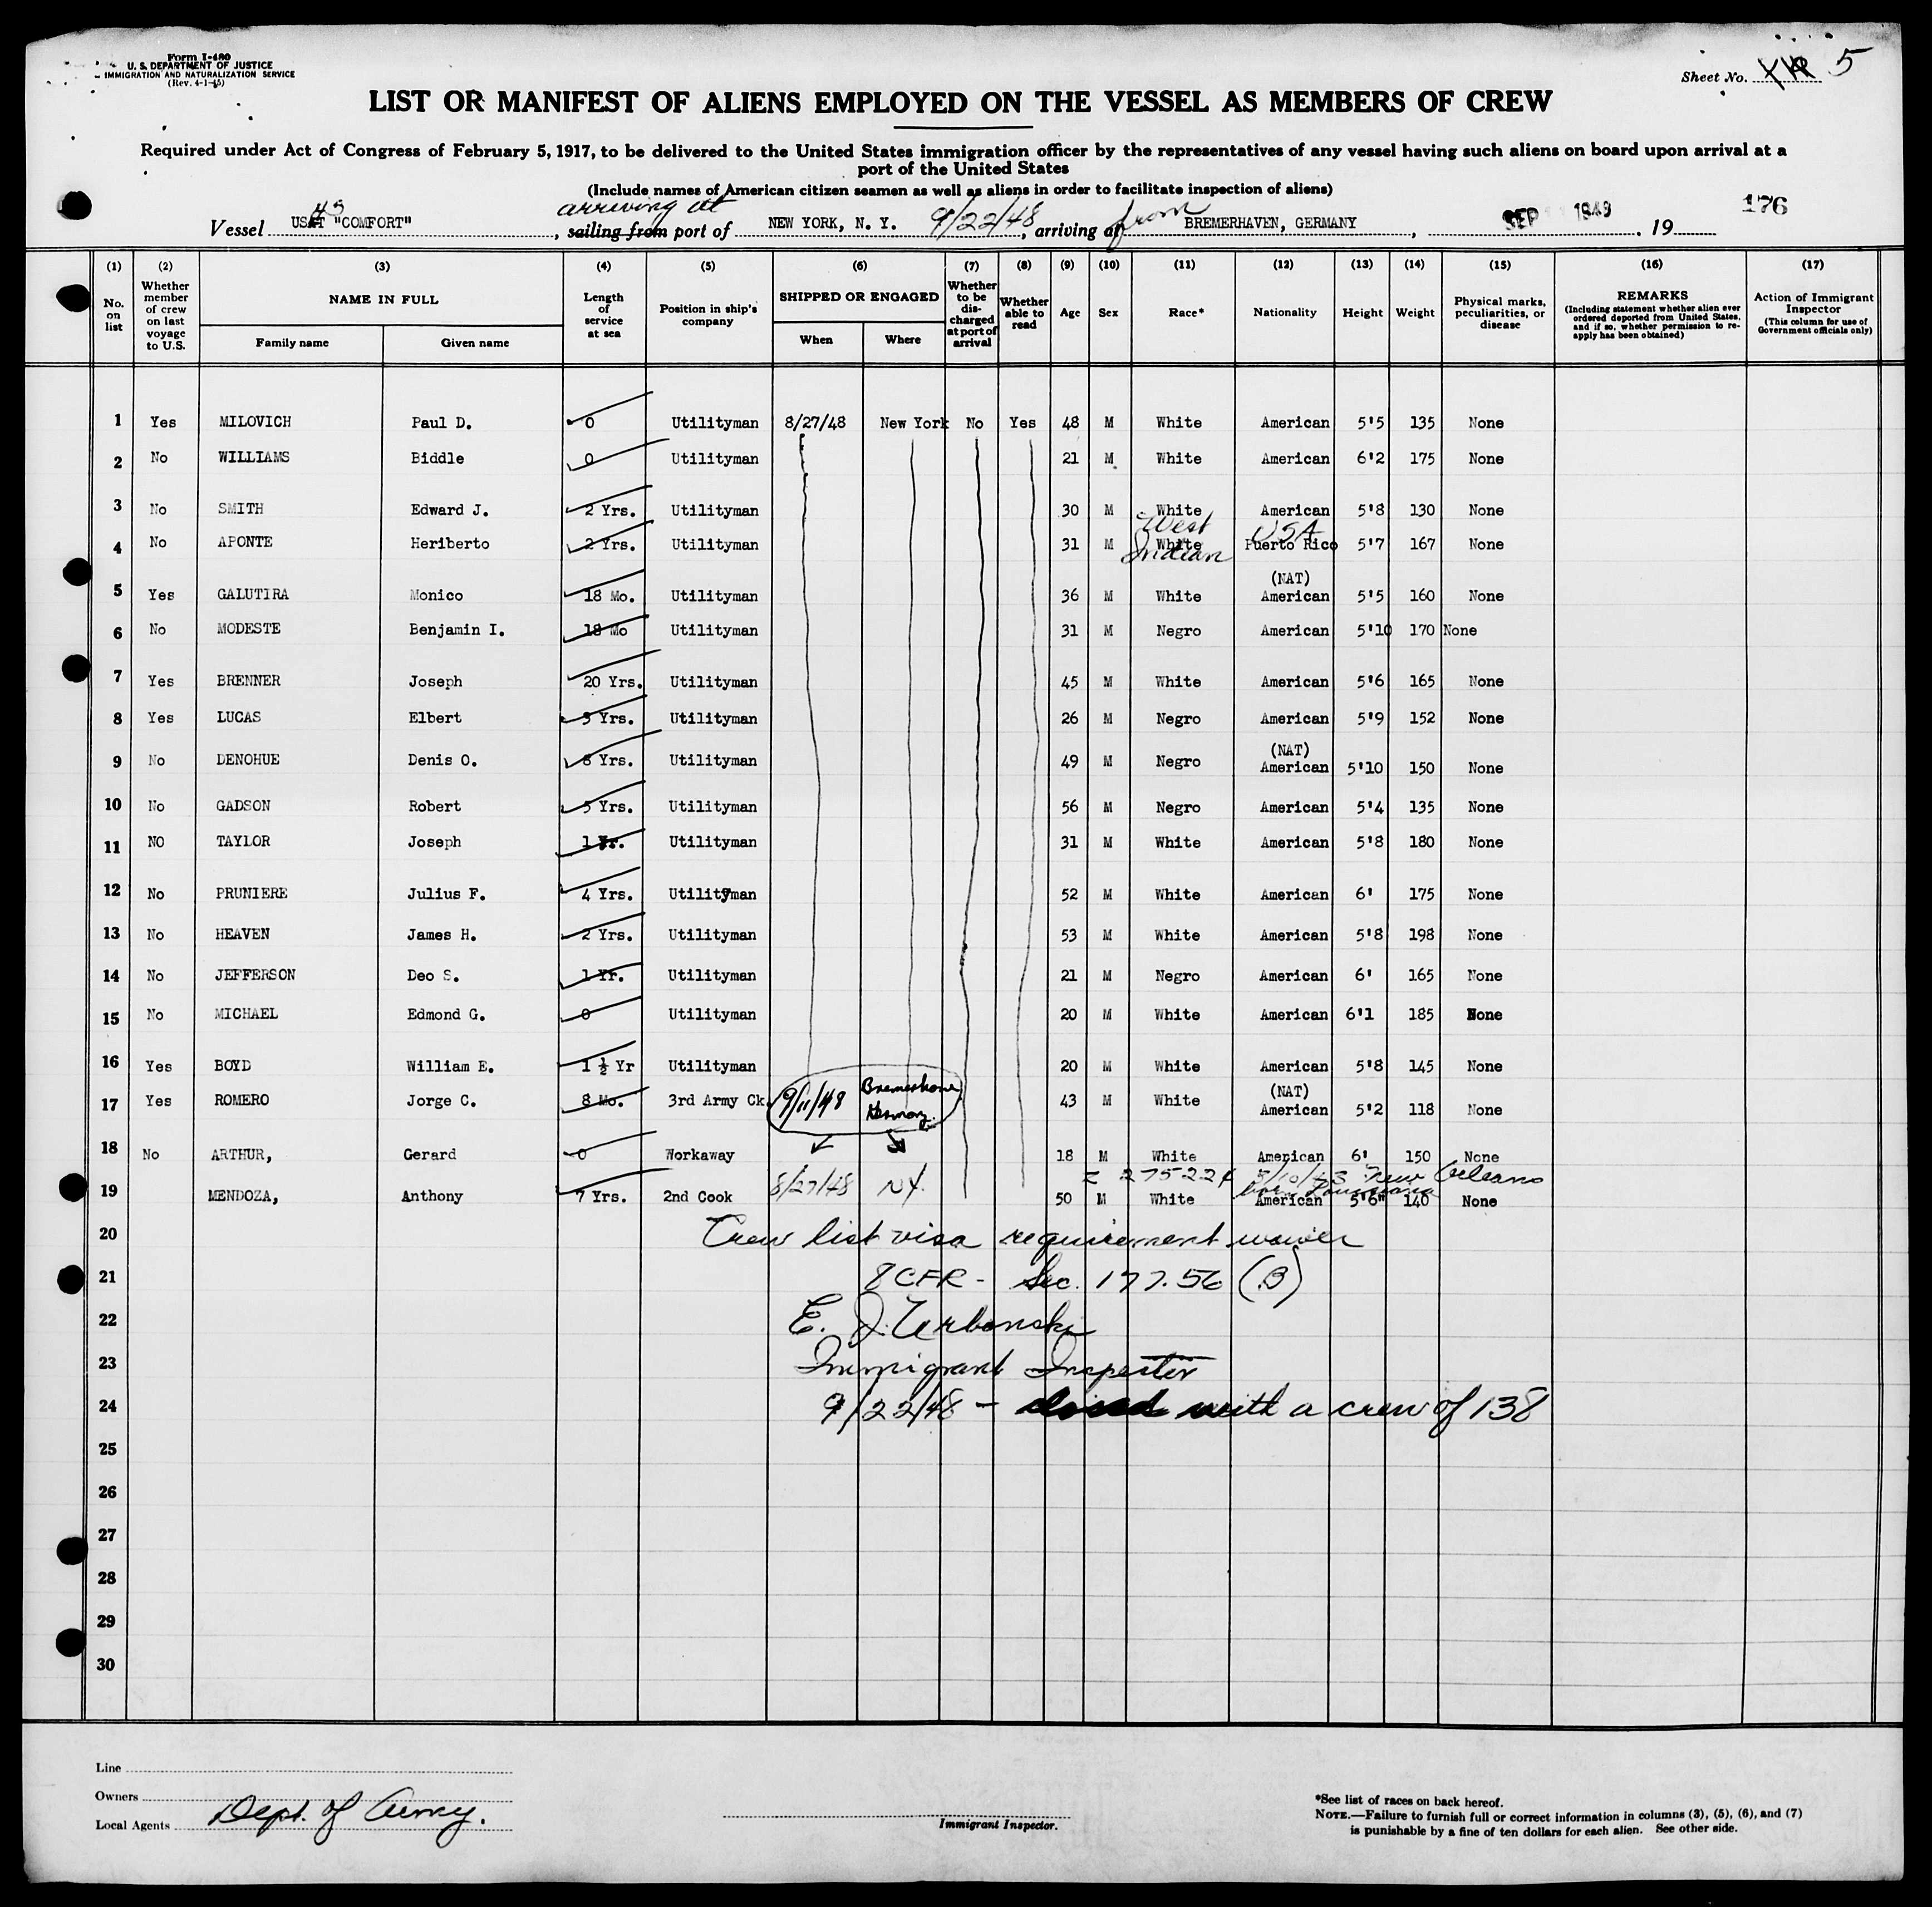 Form I-480
U. S. DEPARTMENT OF JUSTICE
IMMIGRATION AND NATURALIZATION SERVICE
(Rev. 4-1-45)
Sheet No. 5
LIST OR MANIFEST OF ALIENS EMPLOYED ON THE VESSEL AS MEMBERS OF CREW
Required under Act of Congress of February 5, 1917, to be delivered to the United States immigration officer by the representatives of any vessel having such aliens on board upon arrival at a
port of the United States
(Include names of American citizen seamen as well as aliens in order to facilitate inspection of aliens)
arriving at from
Vessel USAT "COMFORT", sailing from port of NEW YORK, N. Y. 9/22/48, arriving at BREMERHAVEN, GERMANY, SEP 1948, 19 176
(1) (2) (3) (4) (5) (6) (7) (8) (9) (10) (11) (12) (13) (14) (15) (16) (17)
No. on list
Whether member of crew on last voyage to U.S.
NAME IN FULL
Family name Given name
Length of service at sea
Position in ship's company
SHIPPED OR ENGAGED
When Where
Whether to be discharged at port of arrival
Whether able to read
Age
Sex
Race*
Nationality
Height
Weight
Physical marks, peculiarities, or disease
REMARKS
(Including statement whether alien ever ordered deported from United States, and if so, whether permission to re-apply has been obtained)
Action of Immigrant Inspector
(This column for use of Government officials only)
1 Yes MILOVICH Paul D. 0 Utilityman 8/27/48 New York No Yes 48 M White American 5'5 135 None
2 No WILLIAMS Biddle 0 Utilityman 21 M White American 6'2 175 None
3 No SMITH Edward J. 2 Yrs. Utilityman 30 M White American 5'8 130 None
West USA
4 No APONTE Heriberto 2 Yrs. Utilityman 31 M White Puerto Rico 5'7 167 None
Indian
(NAT)
5 Yes GALUTIRA Monico 18 Mo. Utilityman 36 M White American 5'5 160 None
6 No MODESTE Benjamin I. 18 Mo Utilityman 31 M Negro American 5'10 170 None
7 Yes BRENNER Joseph 20 Yrs. Utilityman 45 M White American 5'6 165 None
8 Yes LUCAS Elbert 5 Yrs. Utilityman 26 M Negro American 5'9 152 None
(NAT)
9 No DENOHUE Denis O. 8 Yrs. Utilityman 49 M Negro American 5'10 150 None
10 No GADSON Robert 5 Yrs. Utilityman 56 M Negro American 5'4 135 None
11 NO TAYLOR Joseph 1 Yr. Utilityman 31 M White American 5'8 180 None
12 No PRUNIERE Julius F. 4 Yrs. Utilityman 52 M White American 6' 175 None
13 No HEAVEN James H. 2 Yrs. Utilityman 53 M White American 5'8 198 None
14 No JEFFERSON Deo S. 1 Yr. Utilityman 21 M Negro American 6' 165 None
15 No MICHAEL Edmond G. 0 Utilityman 20 M White American 6'1 185 None
16 Yes BOYD William E. 1 ½ Yr Utilityman 20 M White American 5'8 145 None
(NAT)
17 Yes ROMERO Jorge C. 8 Mo. 3rd Army Ck. 9/11/48 Bremerhaven Germany 43 M White American 5'2 118 None
18 No ARTHUR, Gerard 0 Workaway 18 M White American 6' 150 None
Z 275224 5/10/43 New Orleans
born Louisiana
19 MENDOZA, Anthony 7 Yrs. 2nd Cook 8/27/48 NY. 50 M White American 5'6" 140 None
20 Crew list visa requirement waiver
21 8 CFR - Sec. 177.56 (B)
22 E. J. Urbanski
23 Immigrant Inspector
24 9/22/48 - closed with a crew of 138
25
26
27
28
29
30
Line
Owners
Local Agents Dept. of Army.
Immigrant Inspector.
*See list of races on back hereof.
NOTE.—Failure to furnish full or correct information in columns (3), (5), (6), and (7)
is punishable by a fine of ten dollars for each alien. See other side.